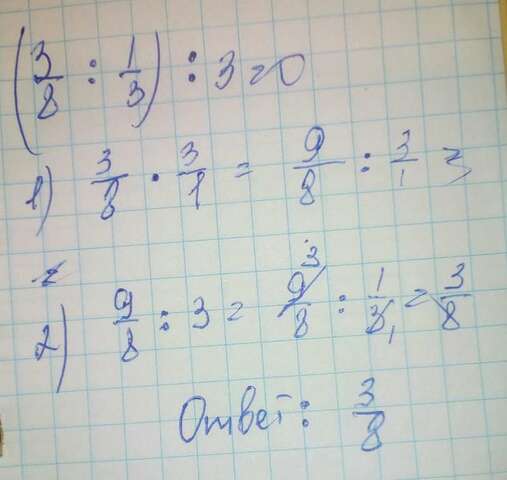 (3/8 : 1/3) : 3 = 0
1) 3/8 · 3/1 = 9/8 : 3/1 =
2) 9/8 : 3 = 9³/8 : 1/3₁ = 3/8
Ответ: 3/8